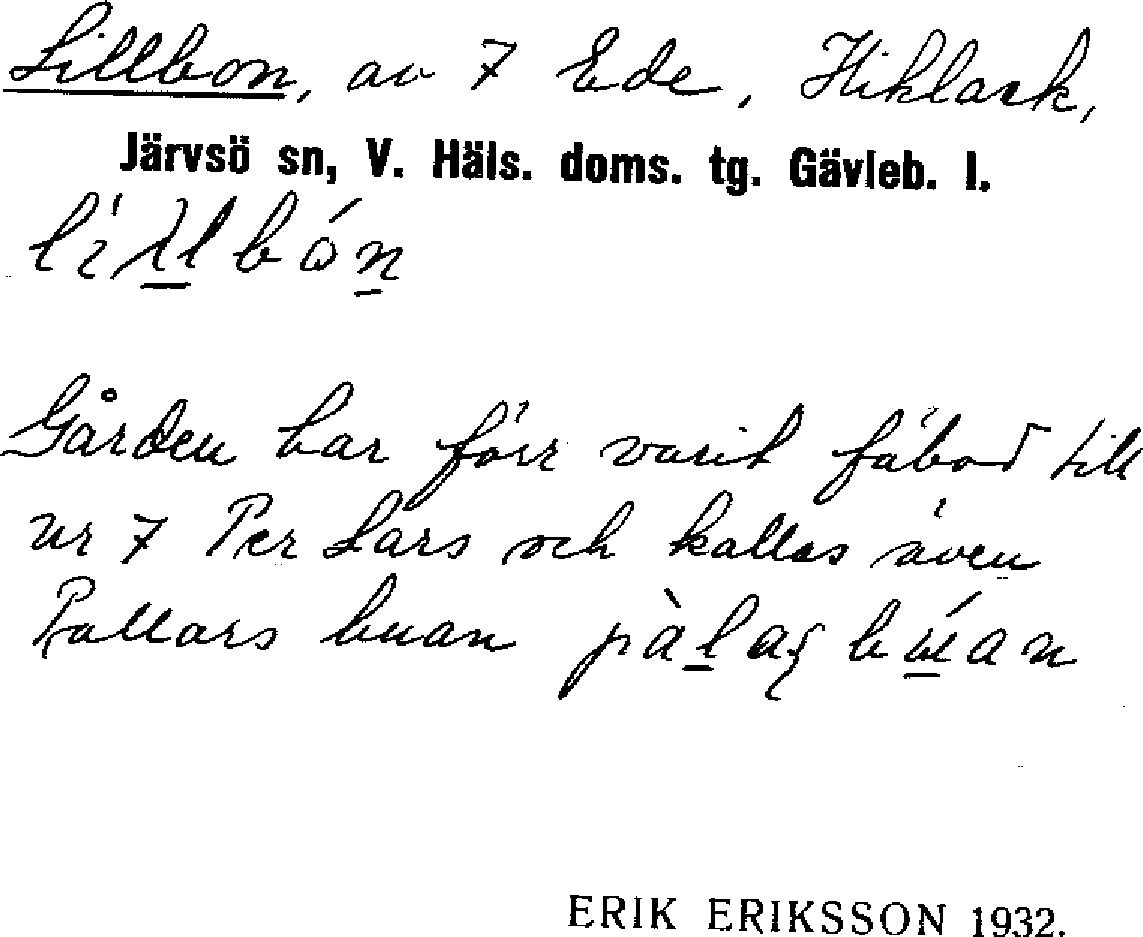 Lillbon, av 7 Ede, Hiklack,
Järvsö sn, V. Häls. doms. tg. Gävleb. l.
Gården har förr varit fäbod till
nr 7 Per Lars och kallas även
Pallars buan
ERIK ERIKSSON 1932.